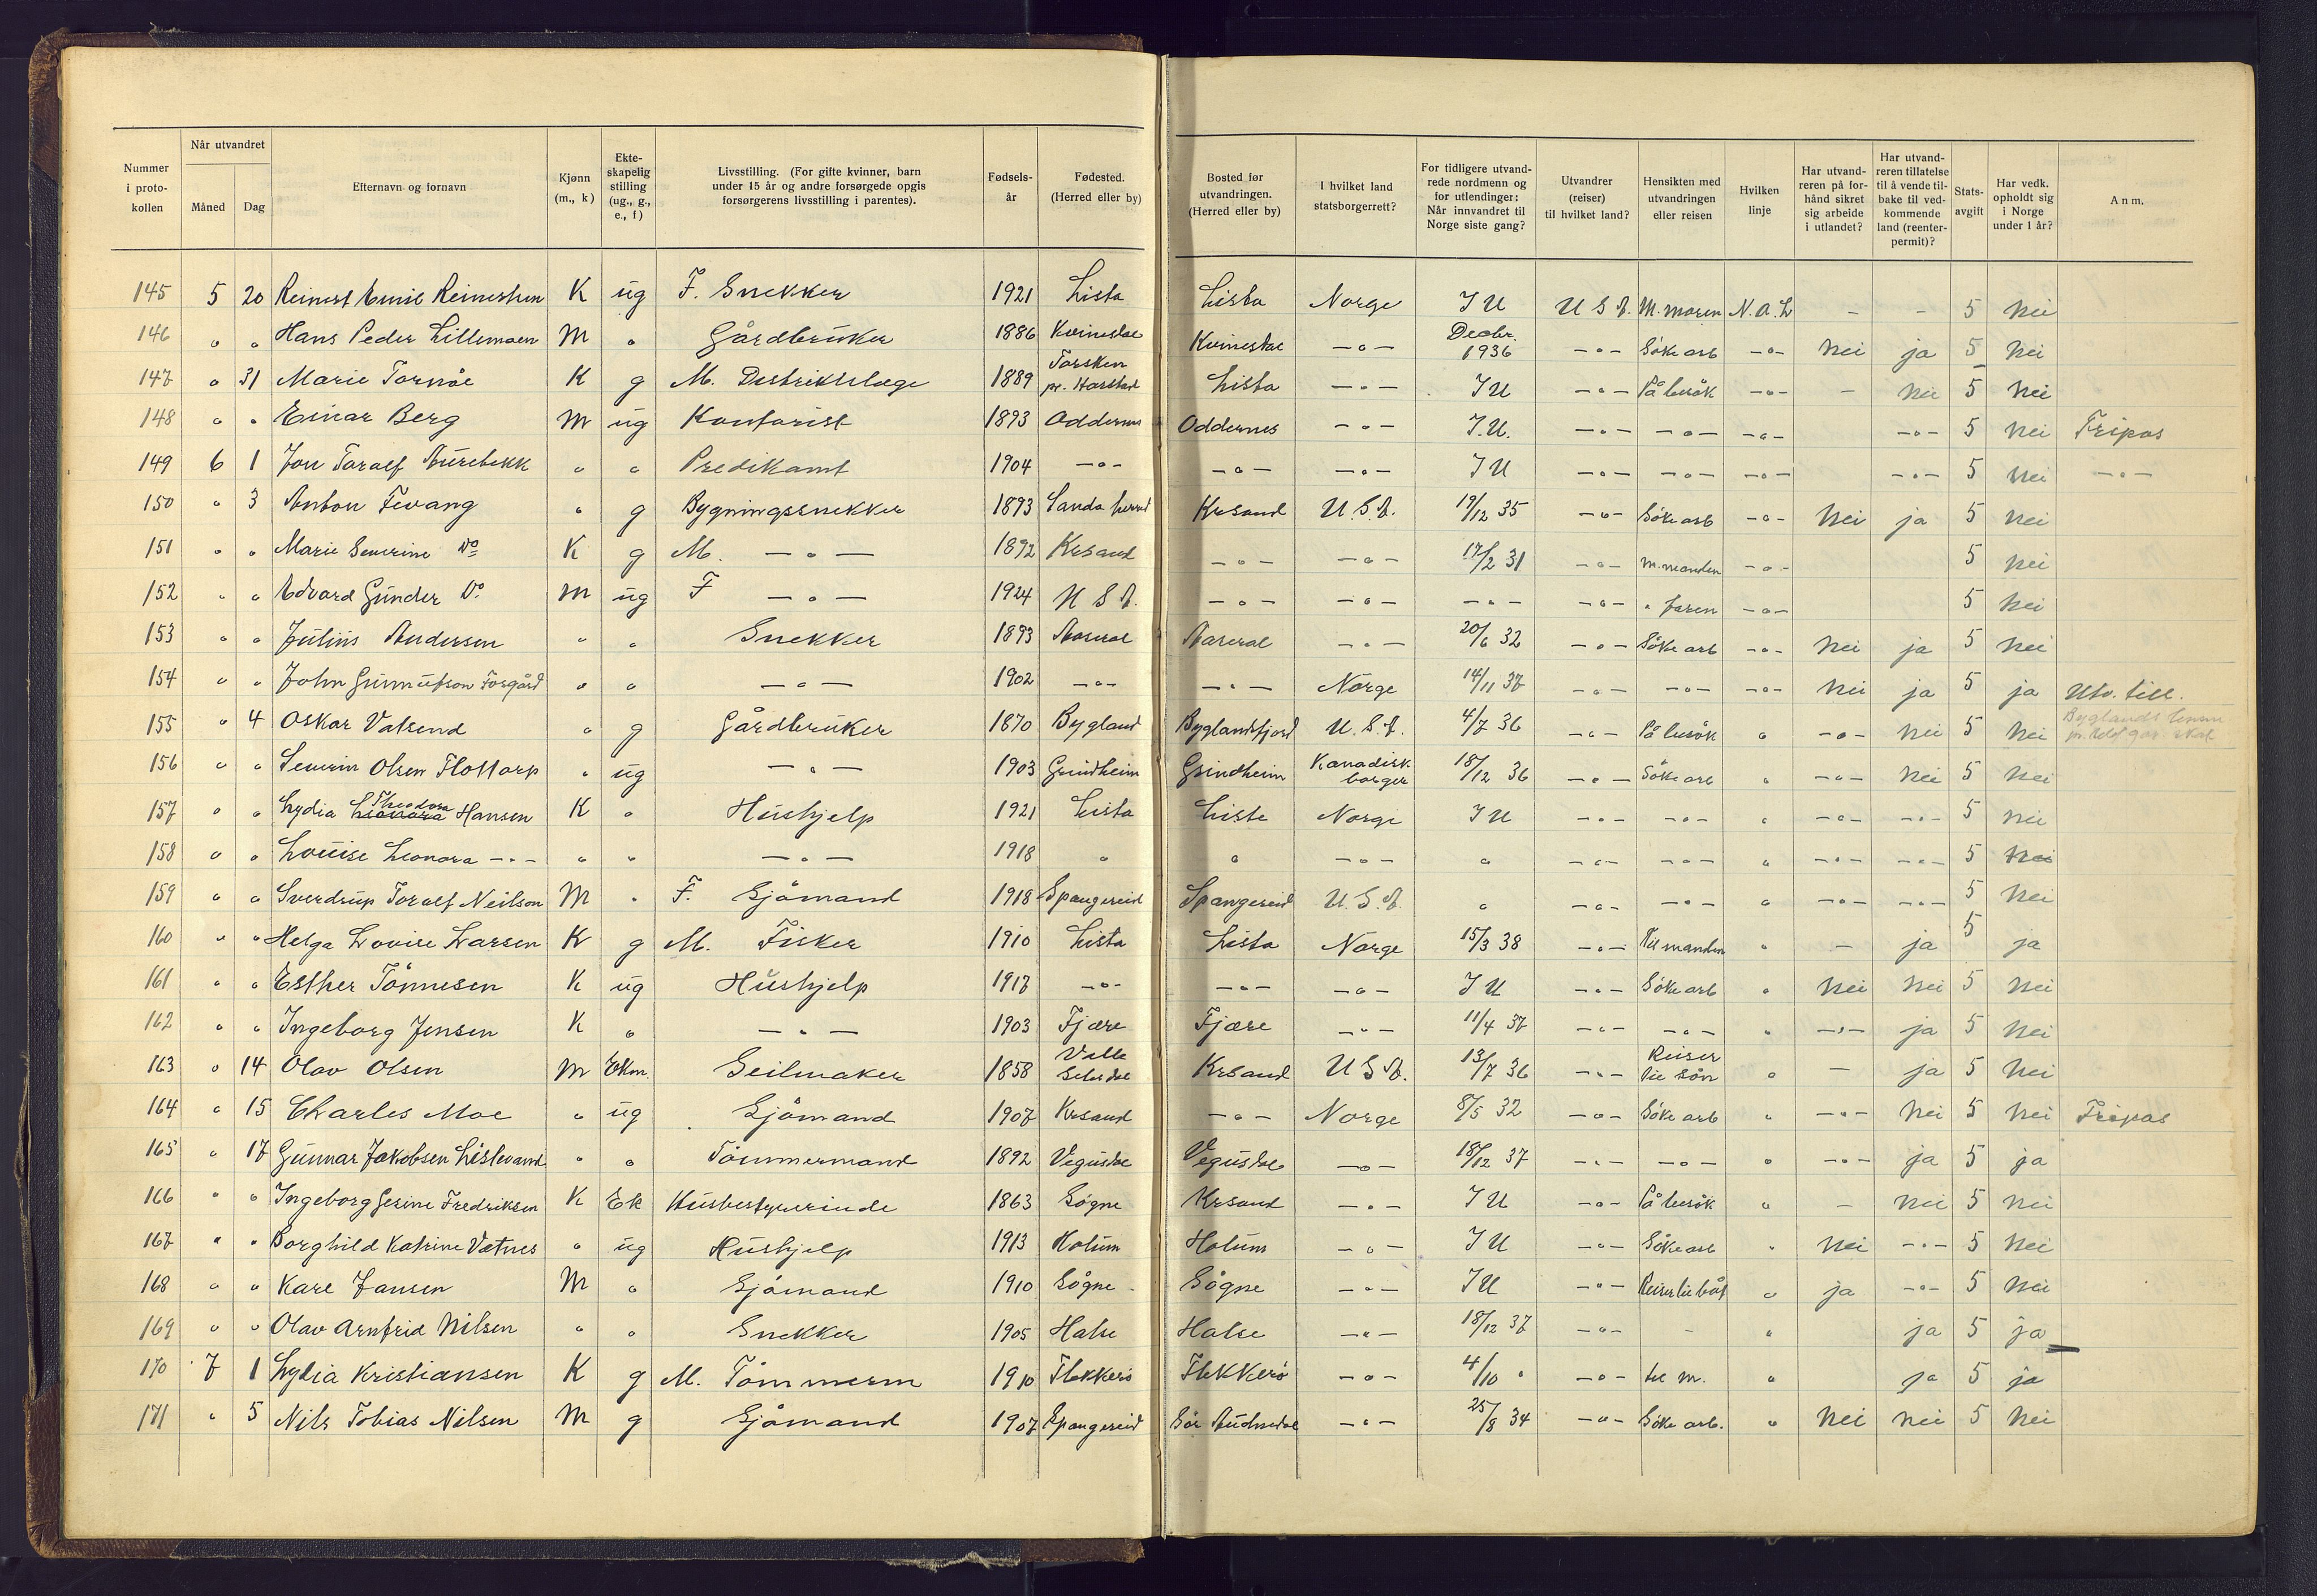 Nummer i proto- kollen | Når utvandret Måned | Dag | Efternavn og fornavn | Kjønn (m., k) | Ekte- skapelig stilling (ug., g., e., f) | Livsstilling. (For gifte kvinner, barn under 15 år og andre forsørgede opgis forsørgerens livsstilling i parentes). | Fødsels- år | Fødested. (Herred eller by) | Bosted før utvandringen. (Herred eller by) | I hvilket land statsborgerrett? | For tidligere utvand- rede nordmenn og for utlendinger: Når innvandret til Norge siste gang? | Utvandrer (reiser) til hvilket land? | Hensikten med utvandringen eller reisen | Hvilken linje | Har utvand- reren på for- hånd sikret sig arbeide i utlandet? | Har utvand- reren tillatelse til å vende til- bake til ved- kommende land (reenter- permit)? | Stats- avgift | Har vedk. opholdt sig i Norge under 1 år? | Anm.
145 | 5 | 20 | Reinert Emil Reinertsen | K | ug | F. Snekker | 1921 | Lista | Lista | Norge | I U | U S A. | M. moren | N. A. L | - | - | 5 | Nei
146 | " | " | Hans Peder Lillemoen | M | " | Gårdbruker | 1886 | Kvinesdal | Kvinesdal | -"- | Decbr. 1936 | -"- | Søke arb | -"- | Nei | ja | 5 | Nei
147 | " | 31 | Marie Tornöe | K | g | M. Distriktslæge | 1889 | Torsken pr. Harstad | Lista | -"- | I U | -"- | På besøk | -"- | - | Nei | 5 | Nei
148 | " | " | Einar Berg | M | ug | Kontorist | 1893 | Oddernes | Oddernes | -"- | I.U. | -"- | -"- | -"- | | -"- | 5 | Nei | Fripas
149 | 6 | 1 | Jon Toralf Aurebekk | " | " | Predikant | 1904 | -"- | -"- | -"- | I U | -"- | -"- | -"- | | -"- | 5 | Nei | -"-
150 | " | 3 | Anton Fevang | " | g | Bygningssnekker | 1893 | Sanda herred | Krsand | U.S.A. | 19/12 35 | -"- | Søke arb | -"- | Nei | ja | 5 | Nei
151 | " | " | Marie Severine Do | K | g | M. -"- | 1892 | Krsand | -"- | -"- | 17/2 31 | -"- | M. manden | -"- | | | 5 | Nei
152 | " | " | Edvard Gunder Do | M | ug | F -"- | 1924 | U S A. | -"- | -"- | -"- | -"- | " faren | -"- | | | 5 | Nei
153 | " | " | Julius Andersen | " | " | Snekker | 1893 | Aaseral | Aaseral | -"- | 20/6 32 | -"- | Søke arb | -"- | Nei | ja | 5 | Nei
154 | " | " | John Gunnufson Forgård | " | " | -"- | 1902 | -"- | -"- | Norge | 14/11 37 | -"- | -"- | -"- | Nei | ja | 5 | ja | Utv. till.
155 | " | 4 | Oskar Vatsend | " | g | Gårdbruker | 1870 | Bygland | Byglandsfjord | U.S.A. | 4/7 36 | -"- | På besøk | " | -"- | Nei | 5 | Nei | Byglands
156 | " | " | Severin Olsen Flottorp | " | ug | -"- | 1903 | Grindheim | Grindheim | Kanadisk borger | 18/12 36 | -"- | Søke arb | " | -"- | Nei | 5 | Nei
157 | " | " | Lydia Theodora Hansen | K | " | Hushjelp | 1921 | Lista | Liste | Norge | I U | -"- | -"- | " | -"- | -"- | 5 | Nei
158 | " | " | Louise Leonora -"- | " | " | -"- | 1918 | " | " | -"- | " | -"- | -"- | " | -"- | -"- | 5 | Nei
159 | " | " | Sverdrup Toralf Neilson | M | " | F. Sjömand | 1918 | Spangereid | Spangereid | U.S.A. | " | -"- | -"- | " | -"- | -"- | 5 | Nei
160 | " | " | Helga Lovise Larsen | K | g | M. Fisker | 1910 | Lista | Lista | Norge | 15/3 38 | -"- | Til manden | " | - | ja | 5 | ja
161 | " | " | Esther Tönnesen | K | ug | Hushjelp | 1917 | -"- | -"- | -"- | I U | -"- | Søke arb | " | Nei | Nei | 5 | Nei
162 | " | " | Ingeborg Jensen | K | " | -"- | 1903 | Fjære | Fjære | -"- | 11/4 37 | -"- | -"- | " | -"- | ja | 5 | Nei
163 | " | 14 | Olav Olsen | M | Ekm. | Seilmaker | 1858 | Valle Setesdal | Krsand | U S A. | 13/7 36 | -"- | Reiser til sön | " | - | ja | 5 | Nei
164 | " | 15 | Charles Moe | " | ug | Sjömand | 1907 | Krsand | -"- | Norge | 8/5 32 | -"- | Søke arb | " | -"- | Nei | 5 | Nei | Fripas
165 | " | 17 | Gunnar Jakobsen Lislevand | " | " | Tömmermand | 1892 | Vegusdal | Vegusdal | -"- | 18/12 37 | -"- | -"- | " | -"- | ja | 5 | ja
166 | " | " | Ingeborg Gesine Fredriksen | K | Ek | Husbestyrerinde | 1863 | Søgne | Krsand | -"- | I U | -"- | På besøk | " | - | Nei | 5 | Nei
167 | " | " | Borghild Katrine Vatnes | " | ug | Hushjelp | 1913 | Holum | Holum | -"- | I U | -"- | Søke arb | " | Nei | -"- | 5 | Nei
168 | " | " | Kare Jansen | M | " | Sjömand | 1910 | Søgne | Søgne | -"- | I U | -"- | Reiser til båt | " | ja | -"- | 5 | Nei
169 | " | " | Olav Arnfrid Nilsen | " | " | Snekker | 1905 | Halse | Halse | -"- | 18/12 37 | -"- | - | " | | ja | 5 | ja
170 | 7 | 1 | Lydia Kristiansen | K | g | M. Tömmerm | 1910 | Flekkerö | Flekkerö | -"- | 4/10 " | -"- | til m. | " | | ja | 5 | ja
171 | " | 5 | Nils Tobias Nilsen | M | g | Sjömand | 1907 | Spangereid | Sör Audnedal | -"- | 25/8 34 | -"- | Søke arb. | " | Nei | nei | 5 | Nei